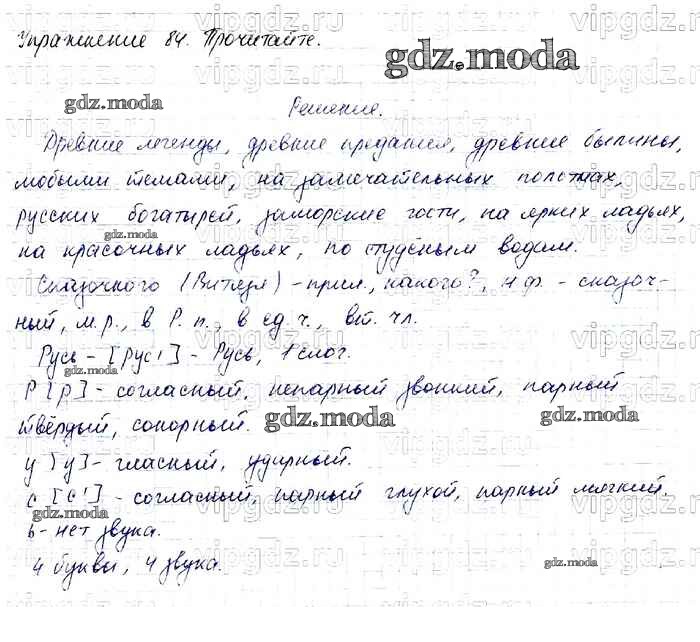 Упражнение 84. Прочитайте.
Решение.
Древние легенды, древние предания, древние былины,
любыми темами, на замечательных полотнах,
русских богатырей, заморские гости, на ярких ладьях,
на красочных ладьях, по студёным водам.
Сказочного (Витязя) - прил., какого?, н.ф. - сказоч-
ный, м.р., в Р.п., в ед.ч., вт. чл.
Русь - [рус'] - Русь, 1 слог.
Р [р] - согласный, непарный звонкий, парный
твёрдый, сонорный.
у [у] - гласный, ударный.
с [с'] - согласный, парный глухой, парный мягкий.
ь - нет звука.
4 буквы, 4 звука.
gdz.moda
gdz.moda
gdz.moda
gdz.moda
gdz.moda
gdz.moda
gdz.moda
gdz.moda
vipgdz.ru